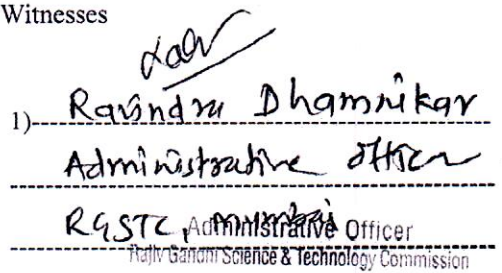 Witnesses
1) Ravindra Dhamnikar
Administrative officer
RGSTC, Mumbai
Administrative Officer
Rajiv Gandhi Science & Technology Commission